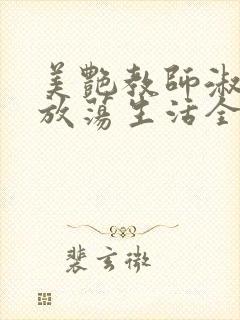 美艷教師淑
放蕩生活全
裴玄微